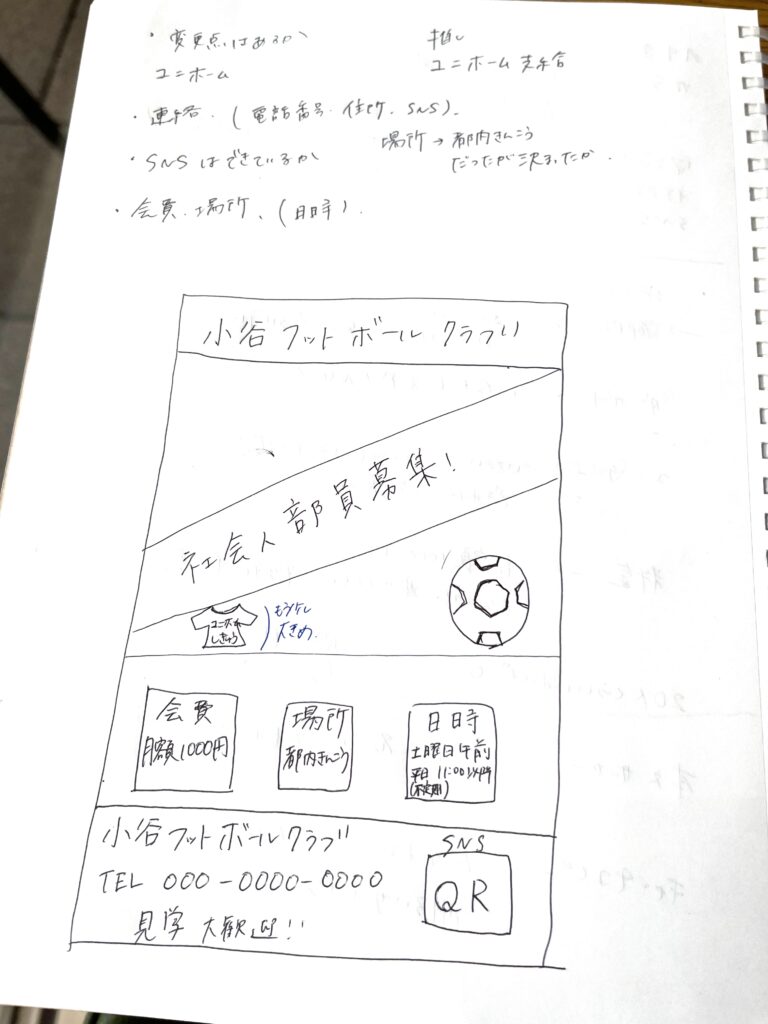 ・変更点はあるか
ユニホーム
推し
ユニホーム支給
・連絡. (電話番号. 住所. SNS).
・SNSはできているか
場所→都内きんこう
だったが決まったか.
・会費. 場所、(日時).
小谷フットボールクラブ
社会人部員募集!
ユニホーム
しきゅう
もう少し
大きめ.
会費
月額1000円
場所
都内きんこう
日時
土曜日午前
平日 11:00以降
(不定期)
小谷フットボールクラブ
TEL 000-0000-0000
見学大歓迎!!
SNS
QR